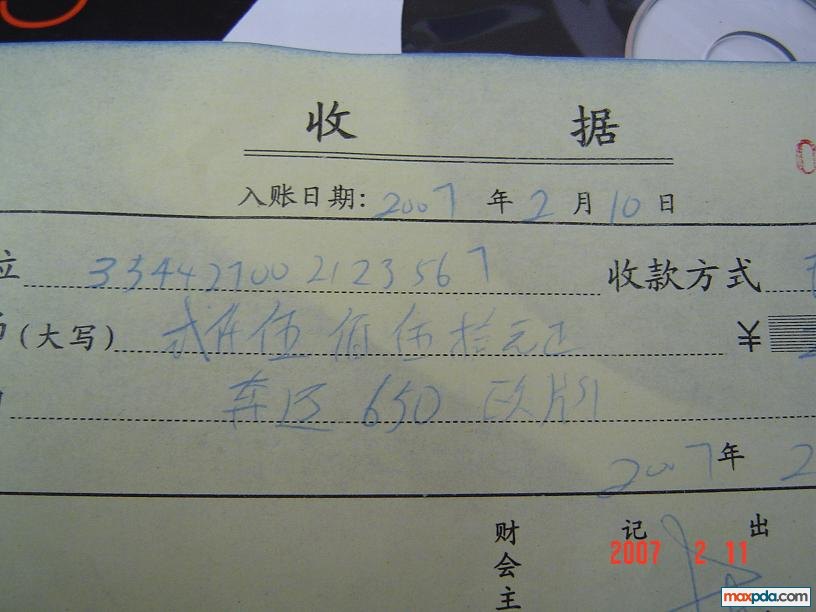 收 据
入账日期: 2007 年 2 月 10 日
334427002123567 收款方式
(大写) 贰仟伍佰伍拾元正 ¥
奔迈 650 欧版
2007 年 2
财会主 记 出
2007 2 11
maxpda.com